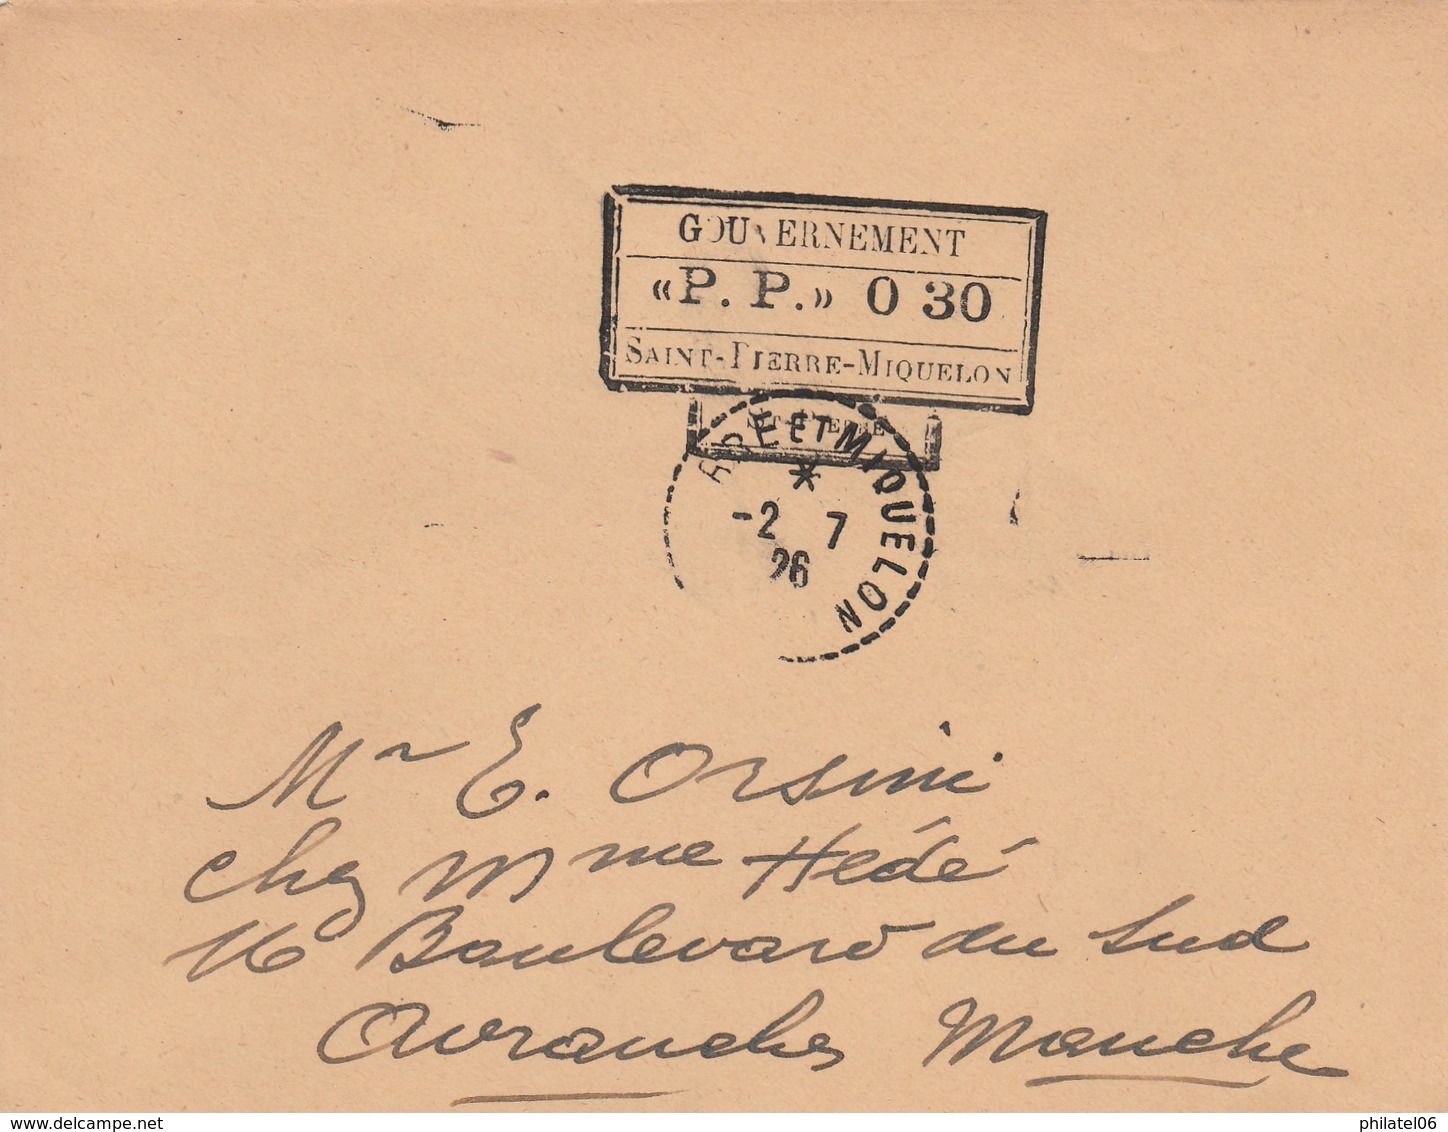 GOUVERNEMENT
«P. P.» 0 30
SAINT-PIERRE-MIQUELON
ST-PIERRE
RRE ET MIQUELON
*
-2 7
26
Mr E. Orsini
chez Mme Hédé
16 Boulevard du Sud
Avranches Manche
delcampe.net
philatel06